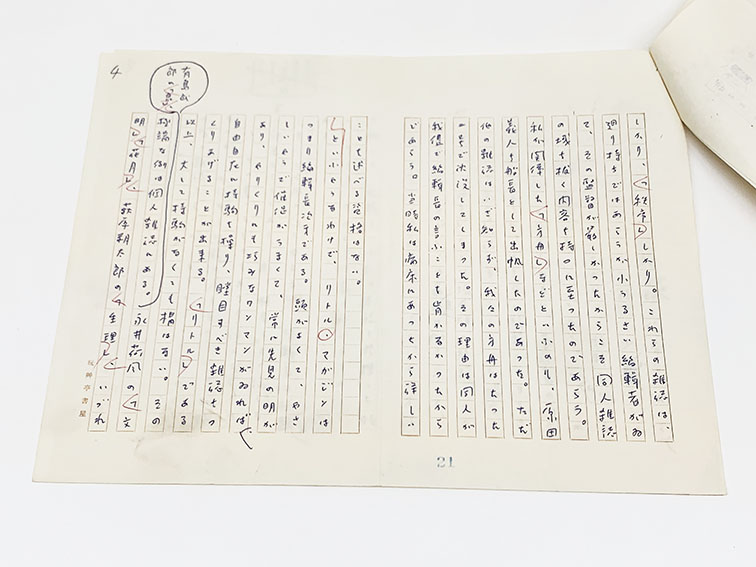 しかり、『秩序』しかり。これらの雑誌は、
廻り持ちではあらうが小うるさい編輯者がゐ
て、その監督が厳しかつたからこそ同人雑誌
の域を抜く内容を持つに至つたのであらう。
私が関係した『方舟』などといふのも、原田
義人を船長として出帆したのであつた。ただ
他の雑誌はいざ知らず、我々の方舟はたつた
二号で沈没してしまつた。その理由は同人が
我儘で編輯長の言ふことを肯かなかつたから
であらう。当時私は病床にあつたから詳しい
21
ことを述べる資格はない。
といふやうなわけで、リトル・マガジンは
つまり編輯長次第である。頭がよくて、やさ
しいやうで催促がうまくて、常に先見の明が
あり、やりくりにも巧みなワンマンがゐれば、
自由自在に持駒を操り、瞠目すべき雑誌をつ
くりあげることが出来る。『リトル』である
以上、大して持駒がなくても構はない。その
極端な例は個人雑誌にある。永井荷風の『文
有島武
郎の『泉』
明』『花月』、萩原朔太郎の『生理』、いづれ
4
亭書屋